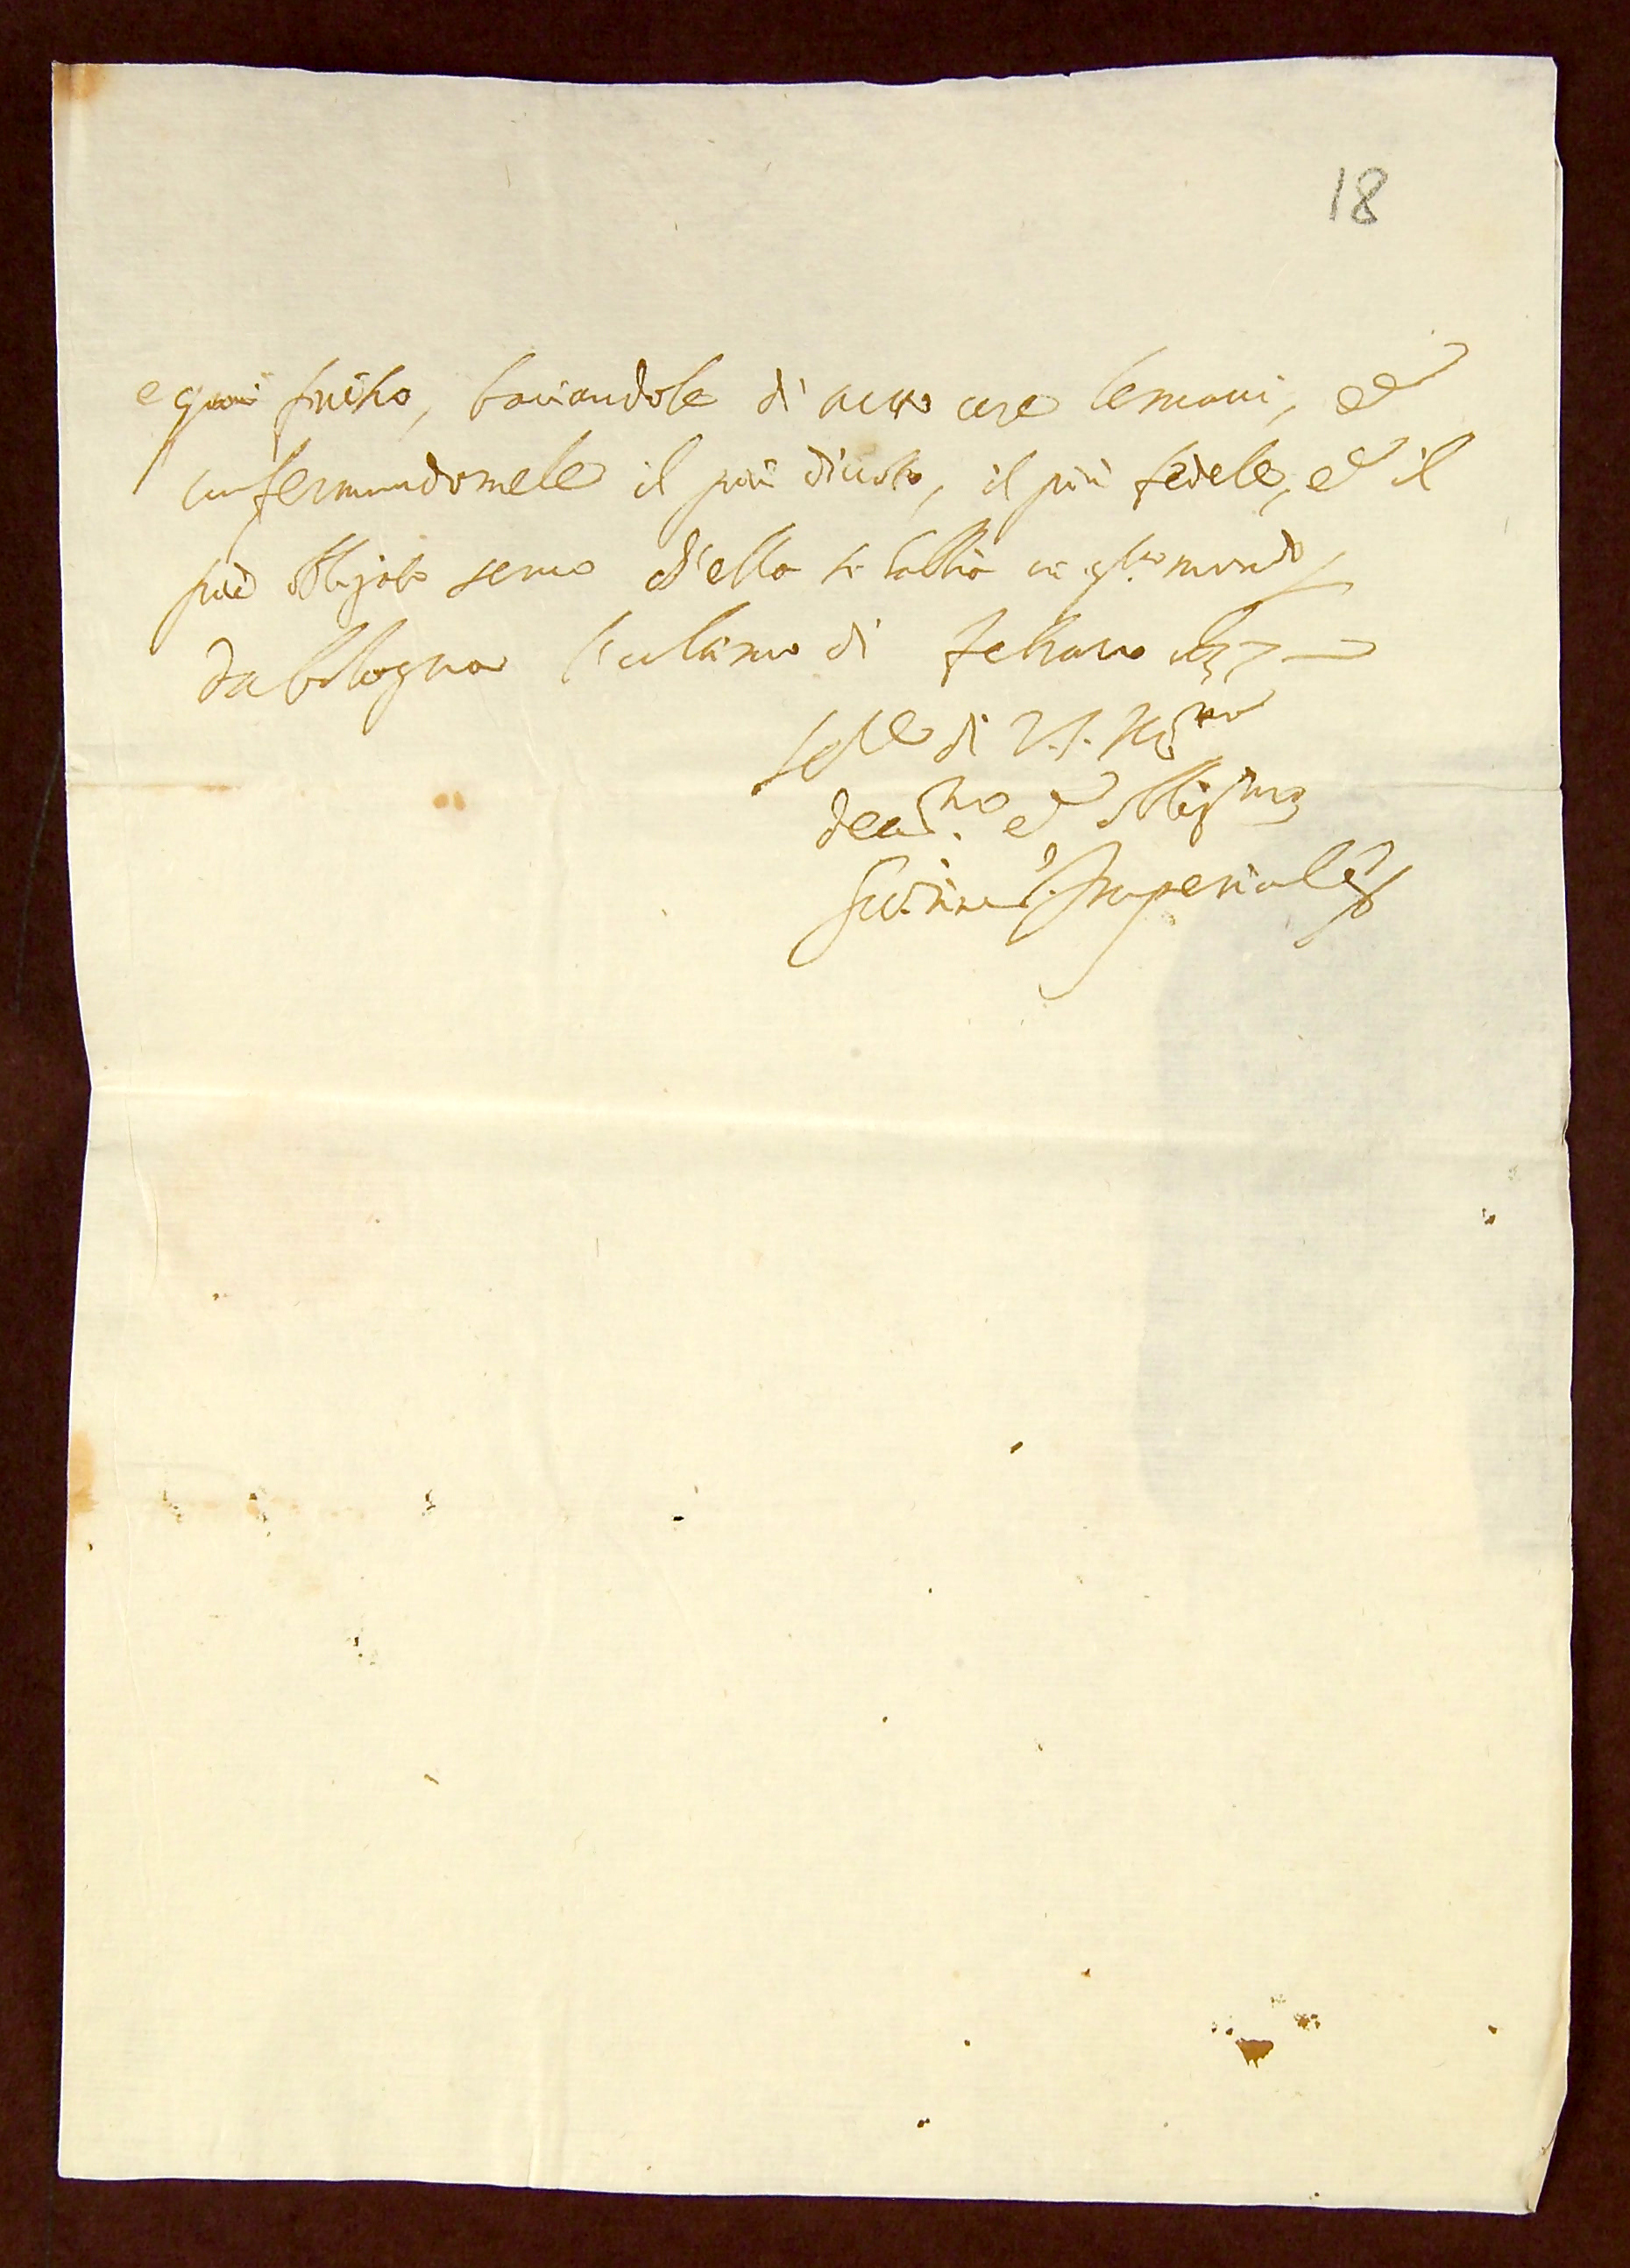 18
e qui finisco, baciandole di vero core le mani, et
confermandomele il più divoto, il più fedele, et il
più obligato servo ch'ella si habbia in q.sto mondo
da bologna l'ultimo di febraro
di V.S. Ill.ma
deu.mo et oblig.mo
Imperiale